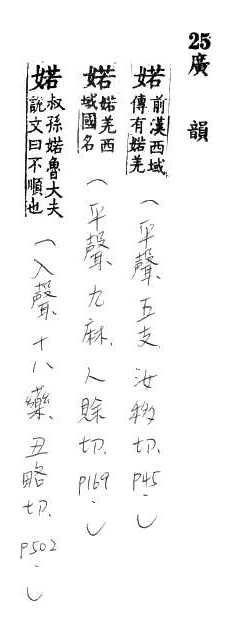 25廣韻
婼 前漢西域傳有婼羌 (平聲、五支、汝移切、P45.)
婼 婼羌西域國名 (平聲、九麻、人賒切、P169.)
婼 叔孫婼魯大夫說文曰不順也 (入聲、十八藥、丑略切、P502.)